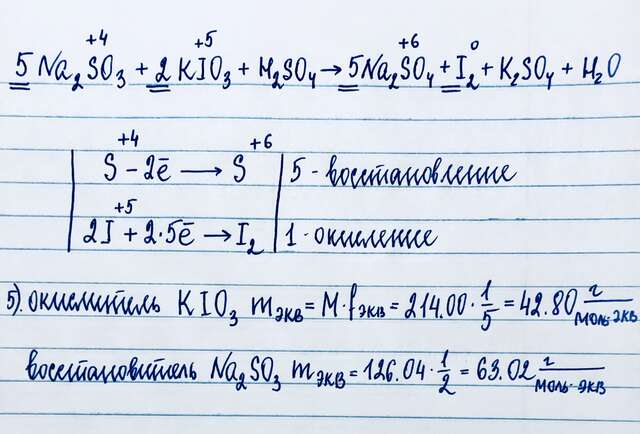 +4 +5 +6 0
5 Na₂SO₃ + 2 KIO₃ + H₂SO₄ → 5Na₂SO₄ + I₂ + K₂SO₄ + H₂O
+4 +6
S - 2ē → S | 5 - восстановление
+5
2I + 2·5ē → I₂ | 1 - окисление
5). окислитель KIO₃ mэкв = M·fэкв = 214.00 · 1/5 = 42.80 г/моль·экв
восстановитель Na₂SO₃ mэкв = 126.04 · 1/2 = 63.02 г/моль·экв